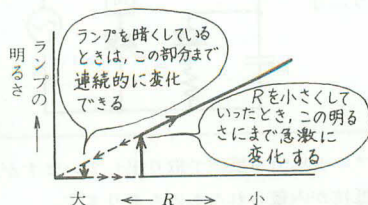 ランプの明るさ →
ランプを暗くしている
ときは,この部分まで
連続的に変化
できる
Rを小さくして
いったとき,この明る
さにまで急激に
変化する
大 ← R → 小